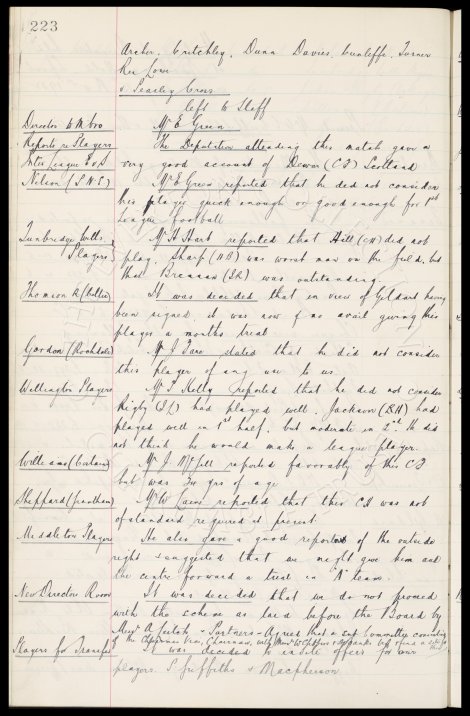 223
Archer, Critchley, Dunn, Davies, Cunliffe, Turner
v Searley Cross
left to Staff
Director to M bro
Mr E Green
Reports re Players
The Deputation attending this match gave a
Inter League E v S
very good account of Dewar (CF) Scotland
Nelson (S.N.E)
Mr E Green reported that he did not consider
this player quick enough or good enough for 1st
League football
Tunbridge Wells
Mr H Hart reported that Hill (CH) did not
Players
play, Sharp (HB) was worst man on the field, but
that Brennan (IR) was outstanding.
Thomson R (Celtic)
It was decided that in view of Geldard having
been signed, it was now of no avail giving this
player a months trial
Gordon (Rochdale)
Mr J Fare stated that he did not consider
this player of any use to us.
Wellington Players
Mr T Kelly reported that he did not consider
Rigby (IL) had played well, Jackson (RH) had
played well in 1st half, but moderate in 2nd. He did
not think he would make a league player.
Mr J McGill reported favorably of this CF
but was 24 yrs of age
Sheppard (Grantham)
Mr W Gavin reported that this CH was not
of standard required at present.
Middleton Players
He also gave a good report of the outside
right & suggested that we might give him and
the centre forward a trial in "A" team.
New Directors Room
It was decided that we do not proceed
with the scheme as laid before the Board by
Messrs A Leitch & Partners - Agreed that a sub Committee consisting
of the Chairman Vice Chairman, with
Players for Transfer
It was decided to invite offers for our
players. S Griffiths & Macpherson